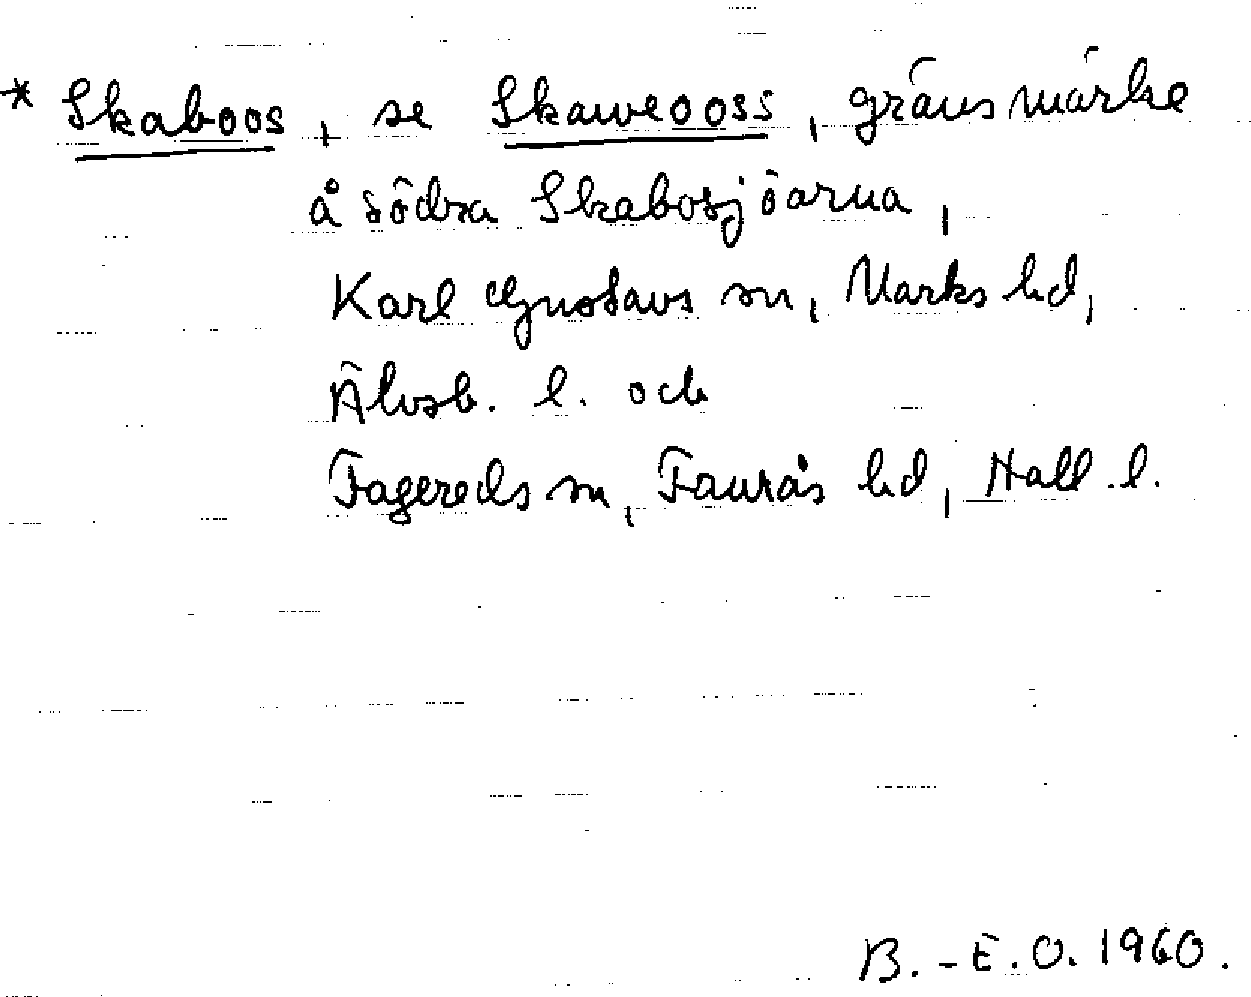 * Skaboos, se Skaweooss, gränsmärke
å södra Skabosjöarna,
Karl Gustavs sn, Marks hd,
Älvsb. l. och
Fagereds sn, Faurås hd, Hall. l.
B.-E.O. 1960.